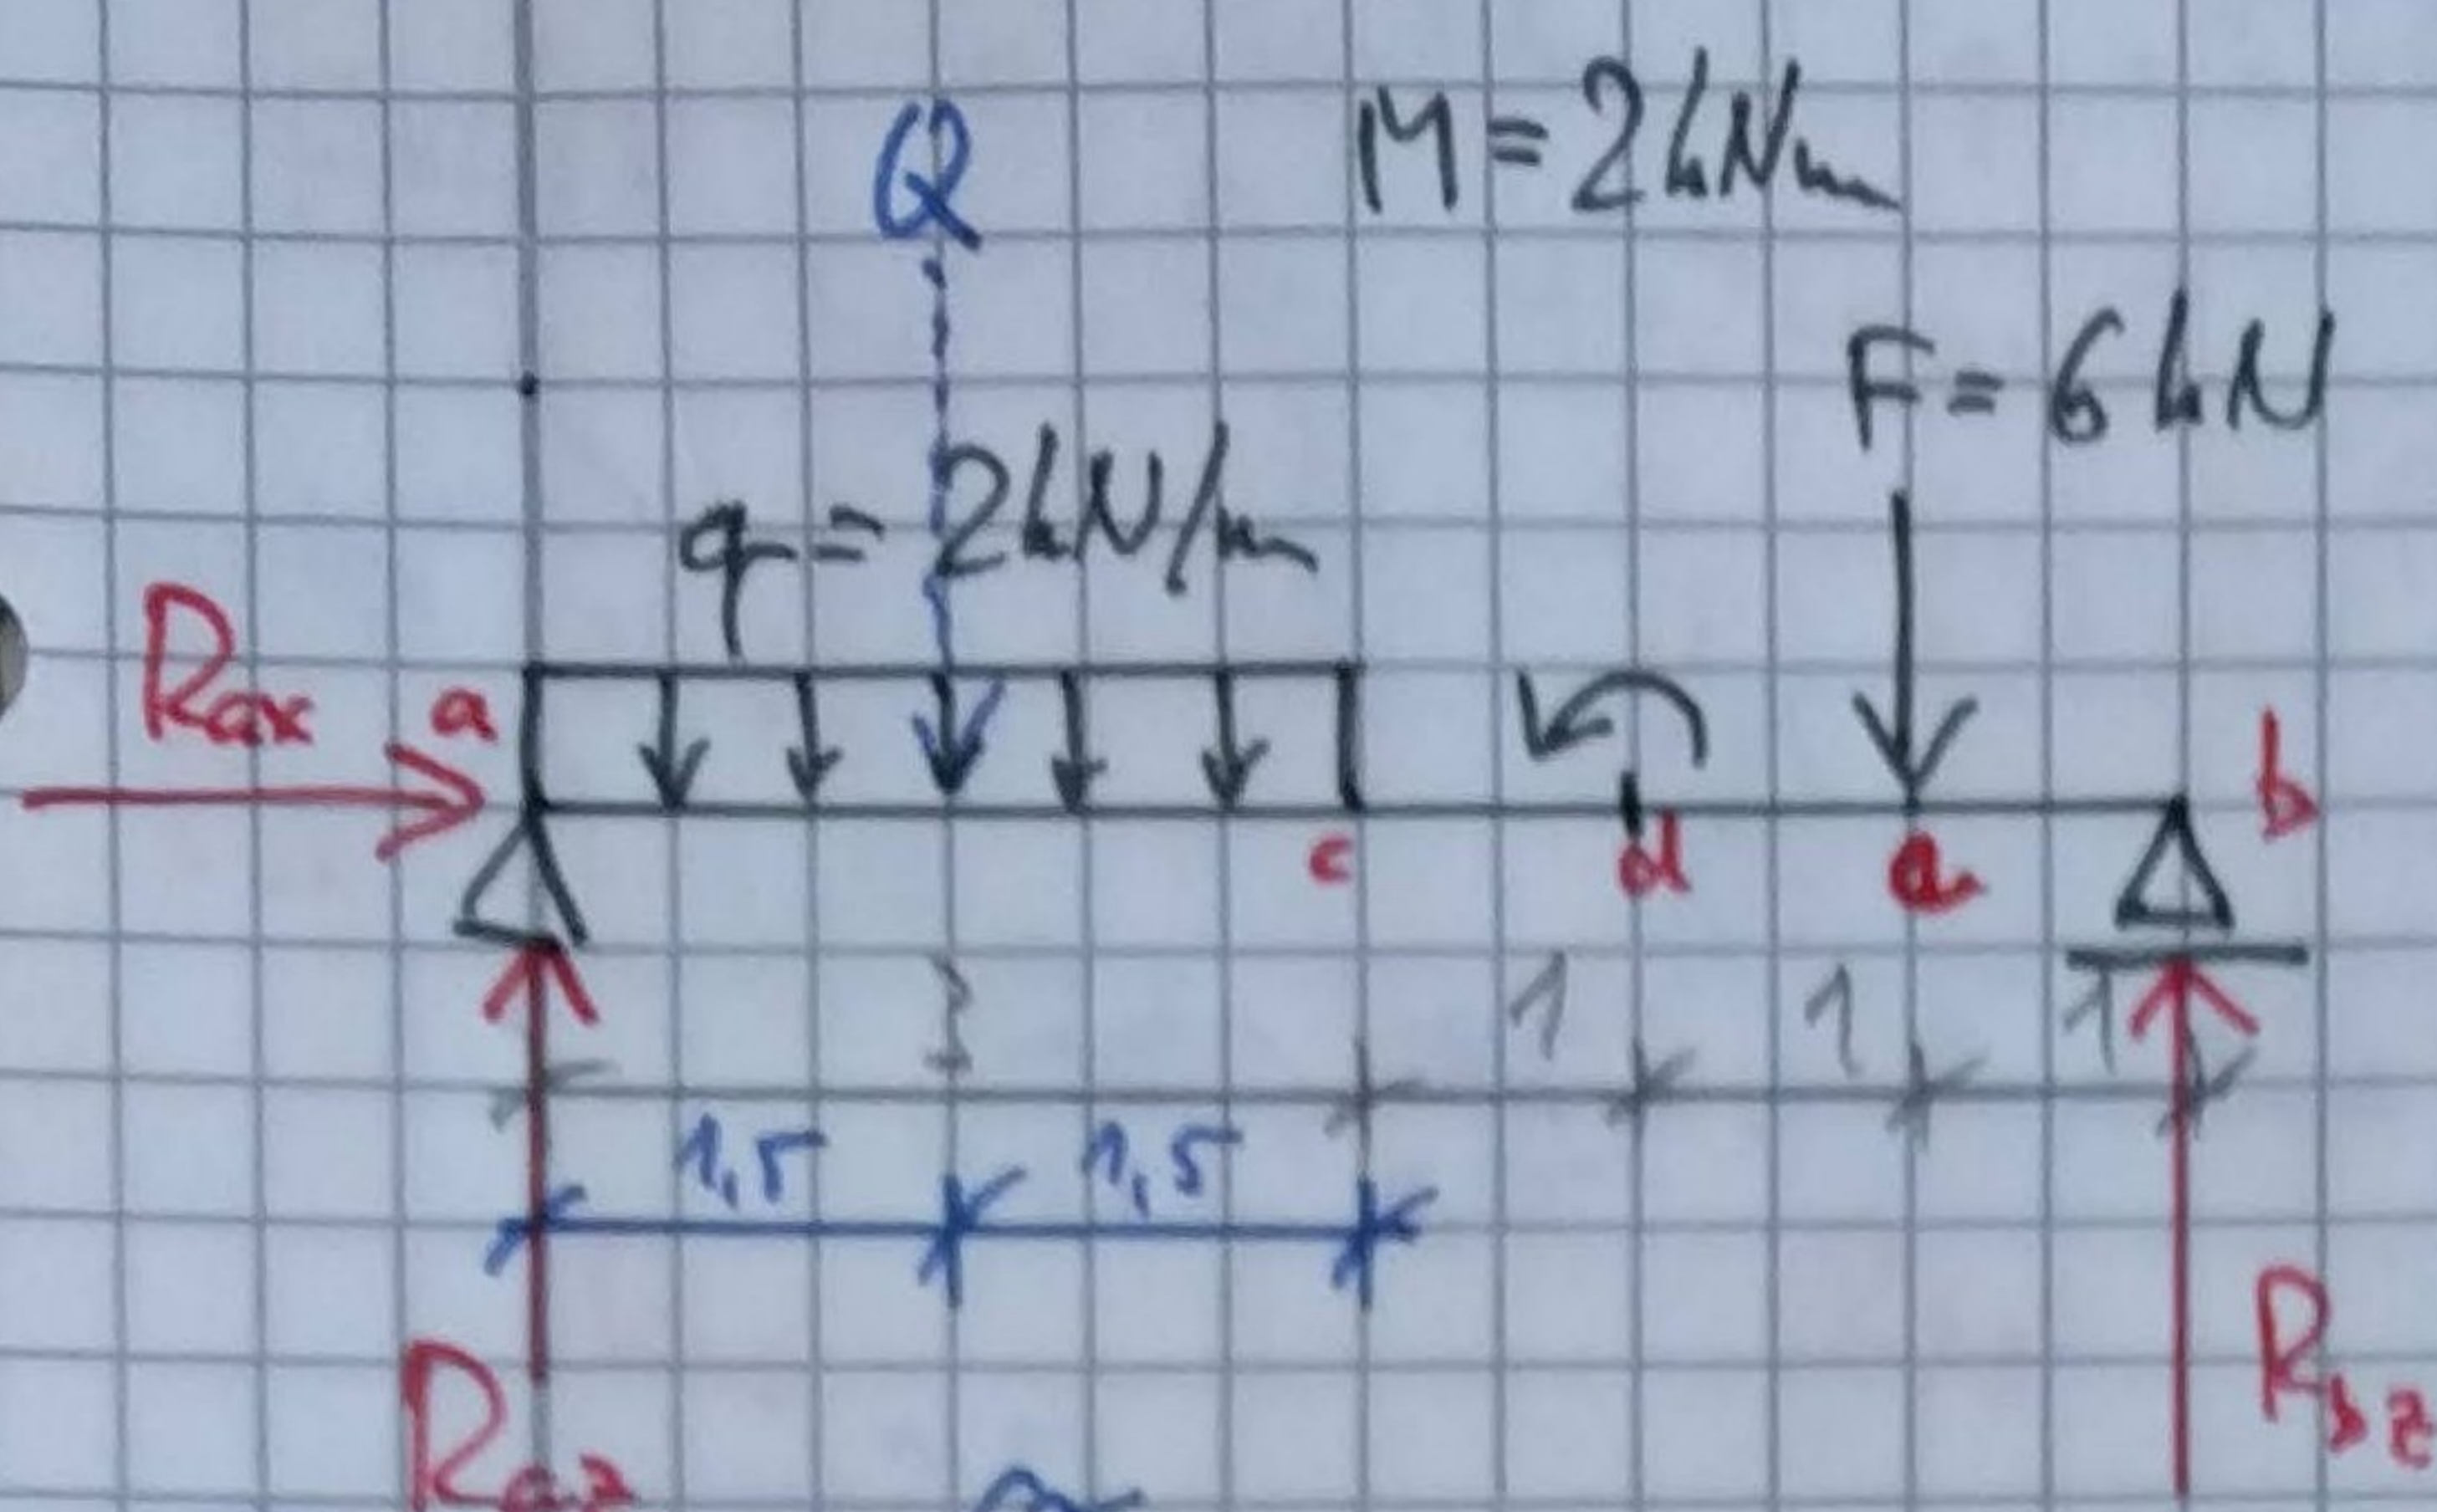 Q
M = 2kNm
F = 6kN
q = 2kN/m
Rax
a
b
c
d
e
3
1
1
1
1,5
1,5
Raz
Rbz